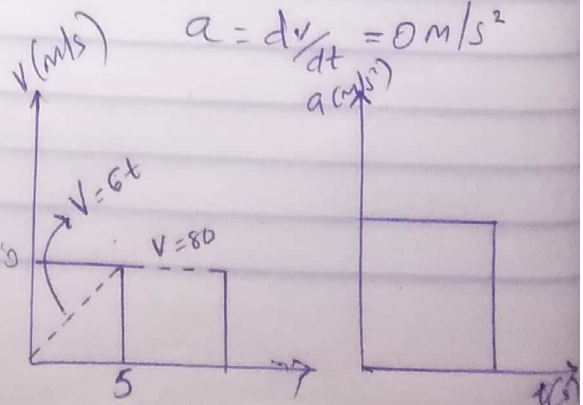 a = dv/dt = 0 m/s²
v(m/s)
a(m/s²)
V=6t
V=80
5
t(s)